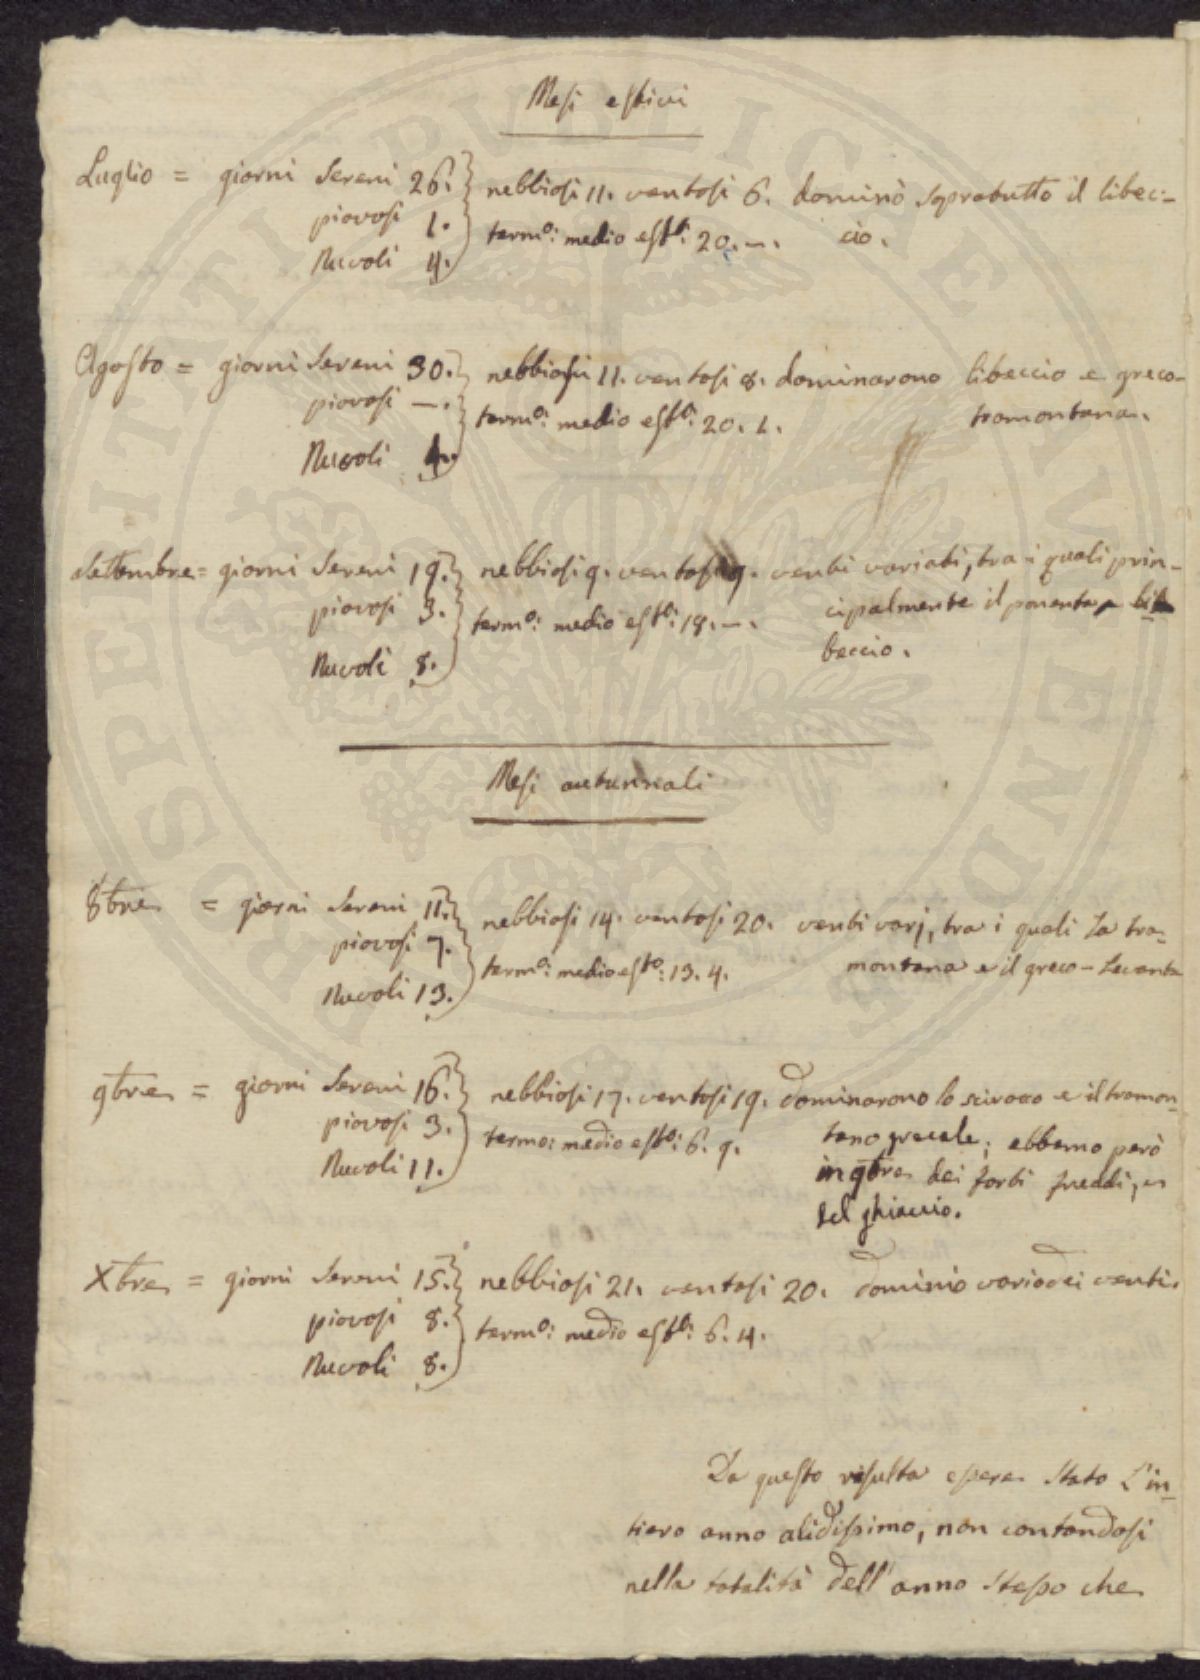 Mesi estivi
Luglio = giorni Sereni 26. nebbiosi 11. ventosi 6. dominò sopratutto il libec-
piovosi 1. termo: medio esto: 20. —. cio.
Nuvoli 4.
Agosto = giorni Sereni 30. nebbiosi 11. ventosi 8. dominarono libeccio e greco-
piovosi —. termo: medio esto: 20. 1. tramontana.
Nuvoli 1.
Settembre = giorni Sereni 19. nebbiosi 9. ventosi 9. venti variati, tra i quali prin-
piovosi 3. termo: medio esto: 18. —. cipalmente il ponente e li
Nuvoli 8. beccio.
Mesi autunnali
8bre = giorni Sereni 11. nebbiosi 14. ventosi 20. venti varj, tra i quali La tra-
piovosi 7. termo: medio esto: 13. 4. montana e il greco-Levante
Nuvoli 13.
9bre = giorni Sereni 16. nebbiosi 17. ventosi 19. dominarono lo scirocco e il tramon-
piovosi 3. termo: medio esto: 6. 9. tano grecale; ebbemo però
Nuvoli 11. in 9bre dei forti freddi, e
del ghiaccio.
Xbre = giorni Sereni 15. nebbiosi 21. ventosi 20. dominio vario dei venti.
piovosi 8. termo: medio esto: 6. 4.
Nuvoli 8.
Da questo risulta essere stato L'in-
tiero anno alidissimo, non contandosi
nella totalità dell'anno stesso che
PROSPERITATI PUBLICAE AUGENDAE